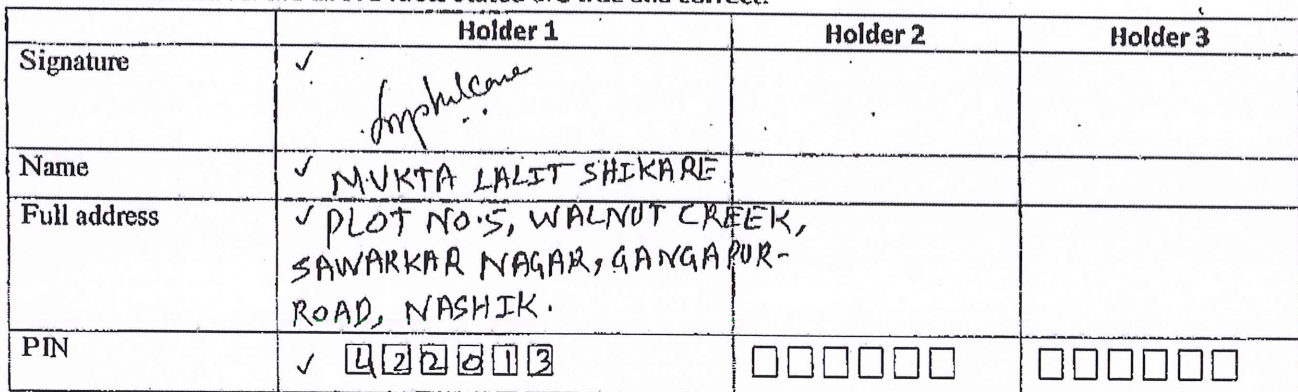 Holder 1 Holder 2 Holder 3
Signature ✓
Name ✓ MUKTA LALIT SHIKARE
Full address ✓ PLOT NO.5, WALNUT CREEK,
SAWARKAR NAGAR, GANGAPUR-
ROAD, NASHIK.
PIN ✓ 422013